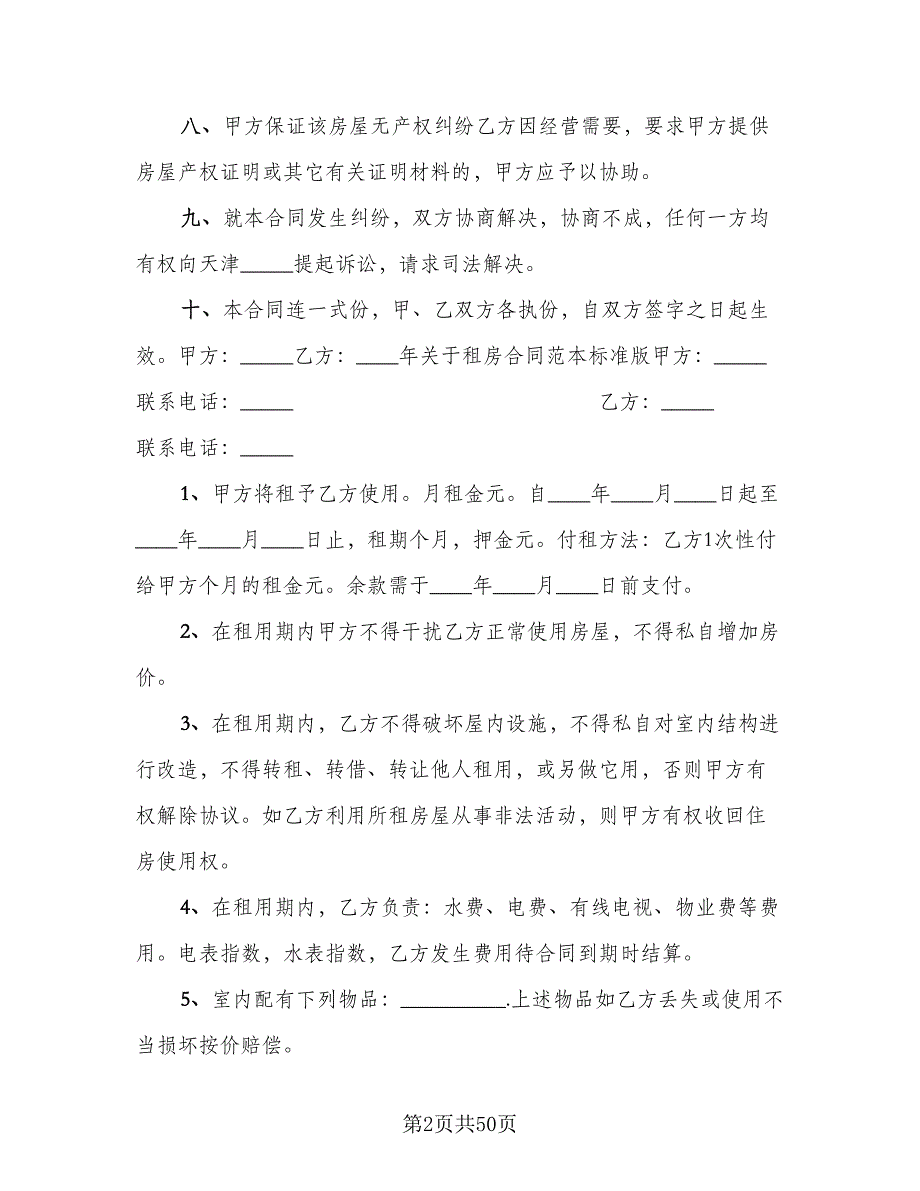 八、甲方保证该房屋无产权纠纷乙方因经营需要，要求甲方提供
房屋产权证明或其它有关证明材料的，甲方应予以协助。
九、就本合同发生纠纷，双方协商解决，协商不成，任何一方均
有权向天津_____提起诉讼，请求司法解决。
十、本合同连一式份，甲、乙双方各执份，自双方签字之日起生
效。甲方：_____乙方：____年关于租房合同范本标准版甲方：_____
联系电话：_____ 乙方：_____
联系电话：_____
1、甲方将租予乙方使用。月租金元。自____年____月____日起至
____年____月____日止，租期个月，押金元。付租方法：乙方1次性付
给甲方个月的租金元。余款需于____年____月____日前支付。
2、在租用期内甲方不得干扰乙方正常使用房屋，不得私自增加房
价。
3、在租用期内，乙方不得破坏屋内设施，不得私自对室内结构进
行改造，不得转租、转借、转让他人租用，或另做它用，否则甲方有
权解除协议。如乙方利用所租房屋从事非法活动，则甲方有权收回住
房使用权。
4、在租用期内，乙方负责：水费、电费、有线电视、物业费等费
用。电表指数，水表指数，乙方发生费用待合同到期时结算。
5、室内配有下列物品：__________.上述物品如乙方丢失或使用不
当损坏按价赔偿。
第2页共50页